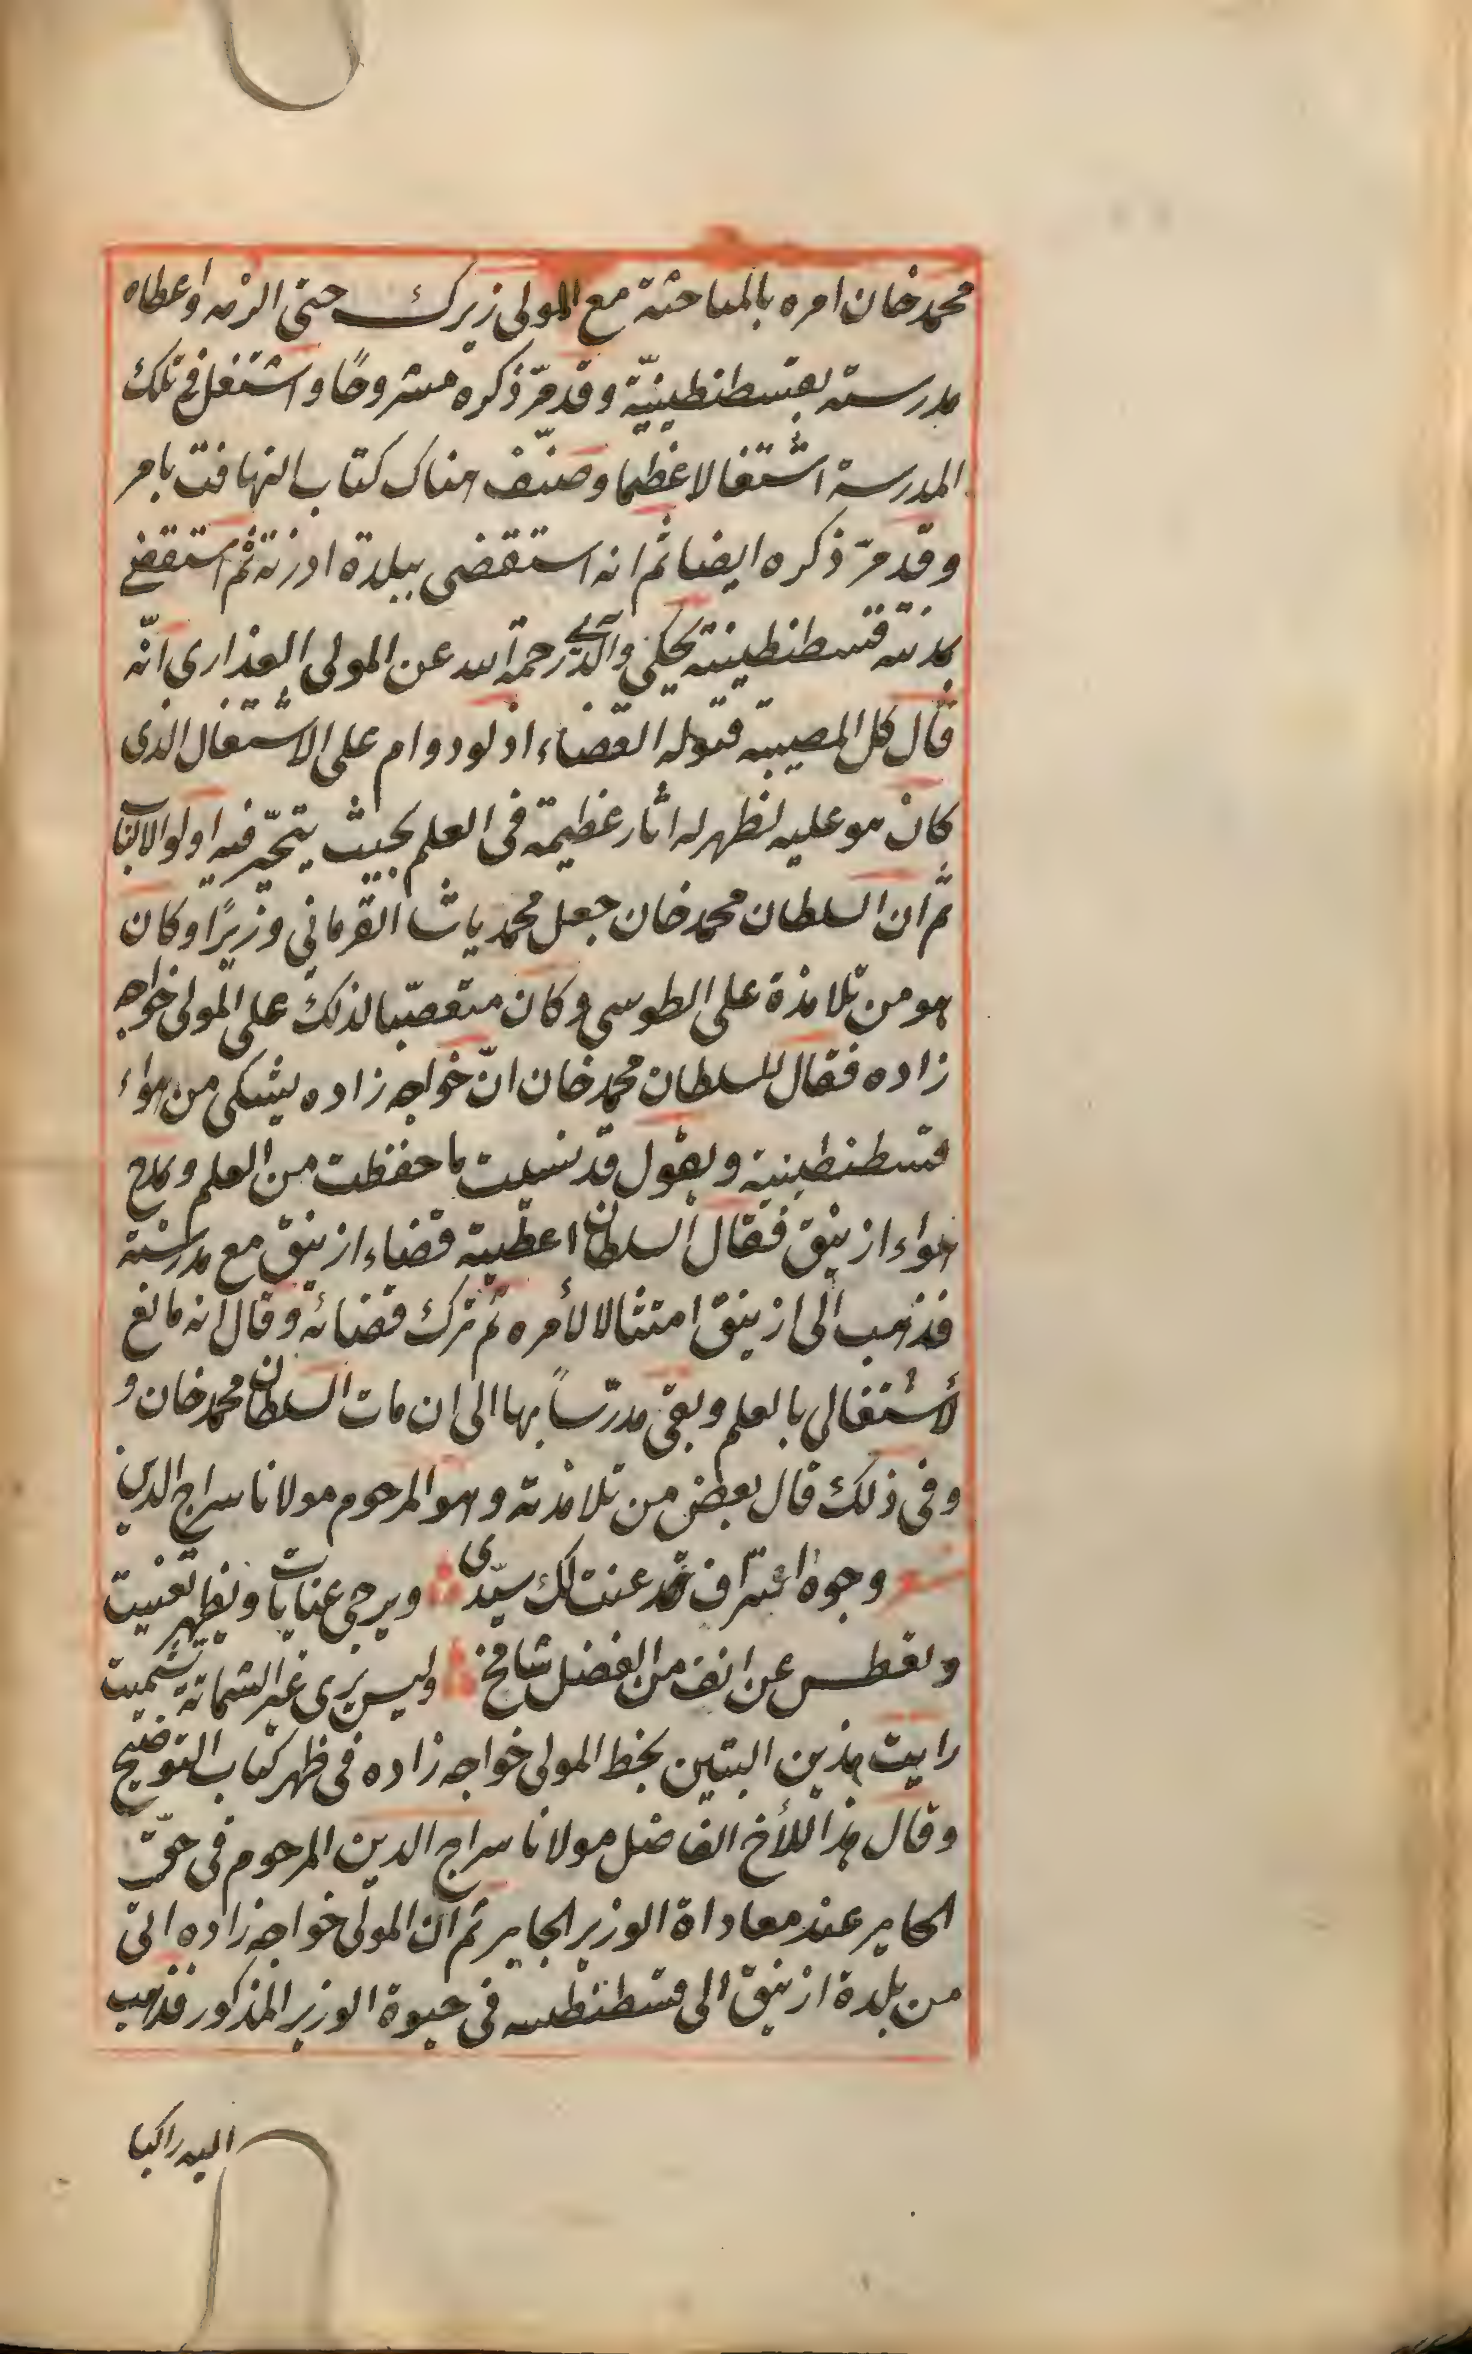 محمد خان امره بالمباحثة مع المولى زيرك حتى الزمه واعطاه
مدرسته بقسطنطينيّة وقد مرّ ذكره مشروحًا واشتغل فى تلك
المدرسة اشتغالا عظيما وصنّف هناك كتاب التهافت بامر
وقد مرّ ذكره ايضا ثم انه استقضى ببلدة ادرنة ثم استقضى
بمدينة قسطنطينية يحكى والدى رحمة الله عن المولى العذارى انّه
قال كل المصيبة قبوله القضاء اذ لو دوام على الاشتغال الذى
كان هو عليه لظهر له اثار عظيمة فى العلم بحيث يتحيّر فيه اولو الالباب
ثم ان السلطان محمد خان جعل محمد پاشا القرمانى وزيرًا وكان
هو من تلامذة على الطوسى وكان متعصّبا لذلك على المولى خواجه
زاده فقال للسلطان محمد خان انّ خواجه زاده يشكى من هواء
قسطنطينية ويقول قد نسيت ما حفظت من العلم ويمدح
هواء ازنيق فقال السلطان اعطيته قضاء ازنيق مع مدرسته
فذهب الى ازنيق امتثالا لأمره ثم ترك قضائه وقال انه مانع
لأشتغالى بالعلم وبقى مدرّسًا بها الى ان مات السلطان محمد خان و
وفى ذلك قال بعض من تلامذته وهو المرحوم مولانا سراج الدين
وجوه اعتراف قد عنت لك سيّدى ويرجى عنايات ويظهر تعنيت
ويعطس عن انف من الفضل شامخ وليس يرى غير الشماتة تشميت
رايت هذين البيتين بخط المولى خواجه زاده فى ظهر كتاب التوضيح
وقال هذا للأخ الفاضل مولانا سراج الدين المرحوم فى حقّ
الحاير عند معاداة الوزير الجاير ثم ان المولى خواجه زاده اتى
من بلدة ازنيق الى قسطنطينيه فى حيوة الوزير المذكور فذهب
اليه راكبا